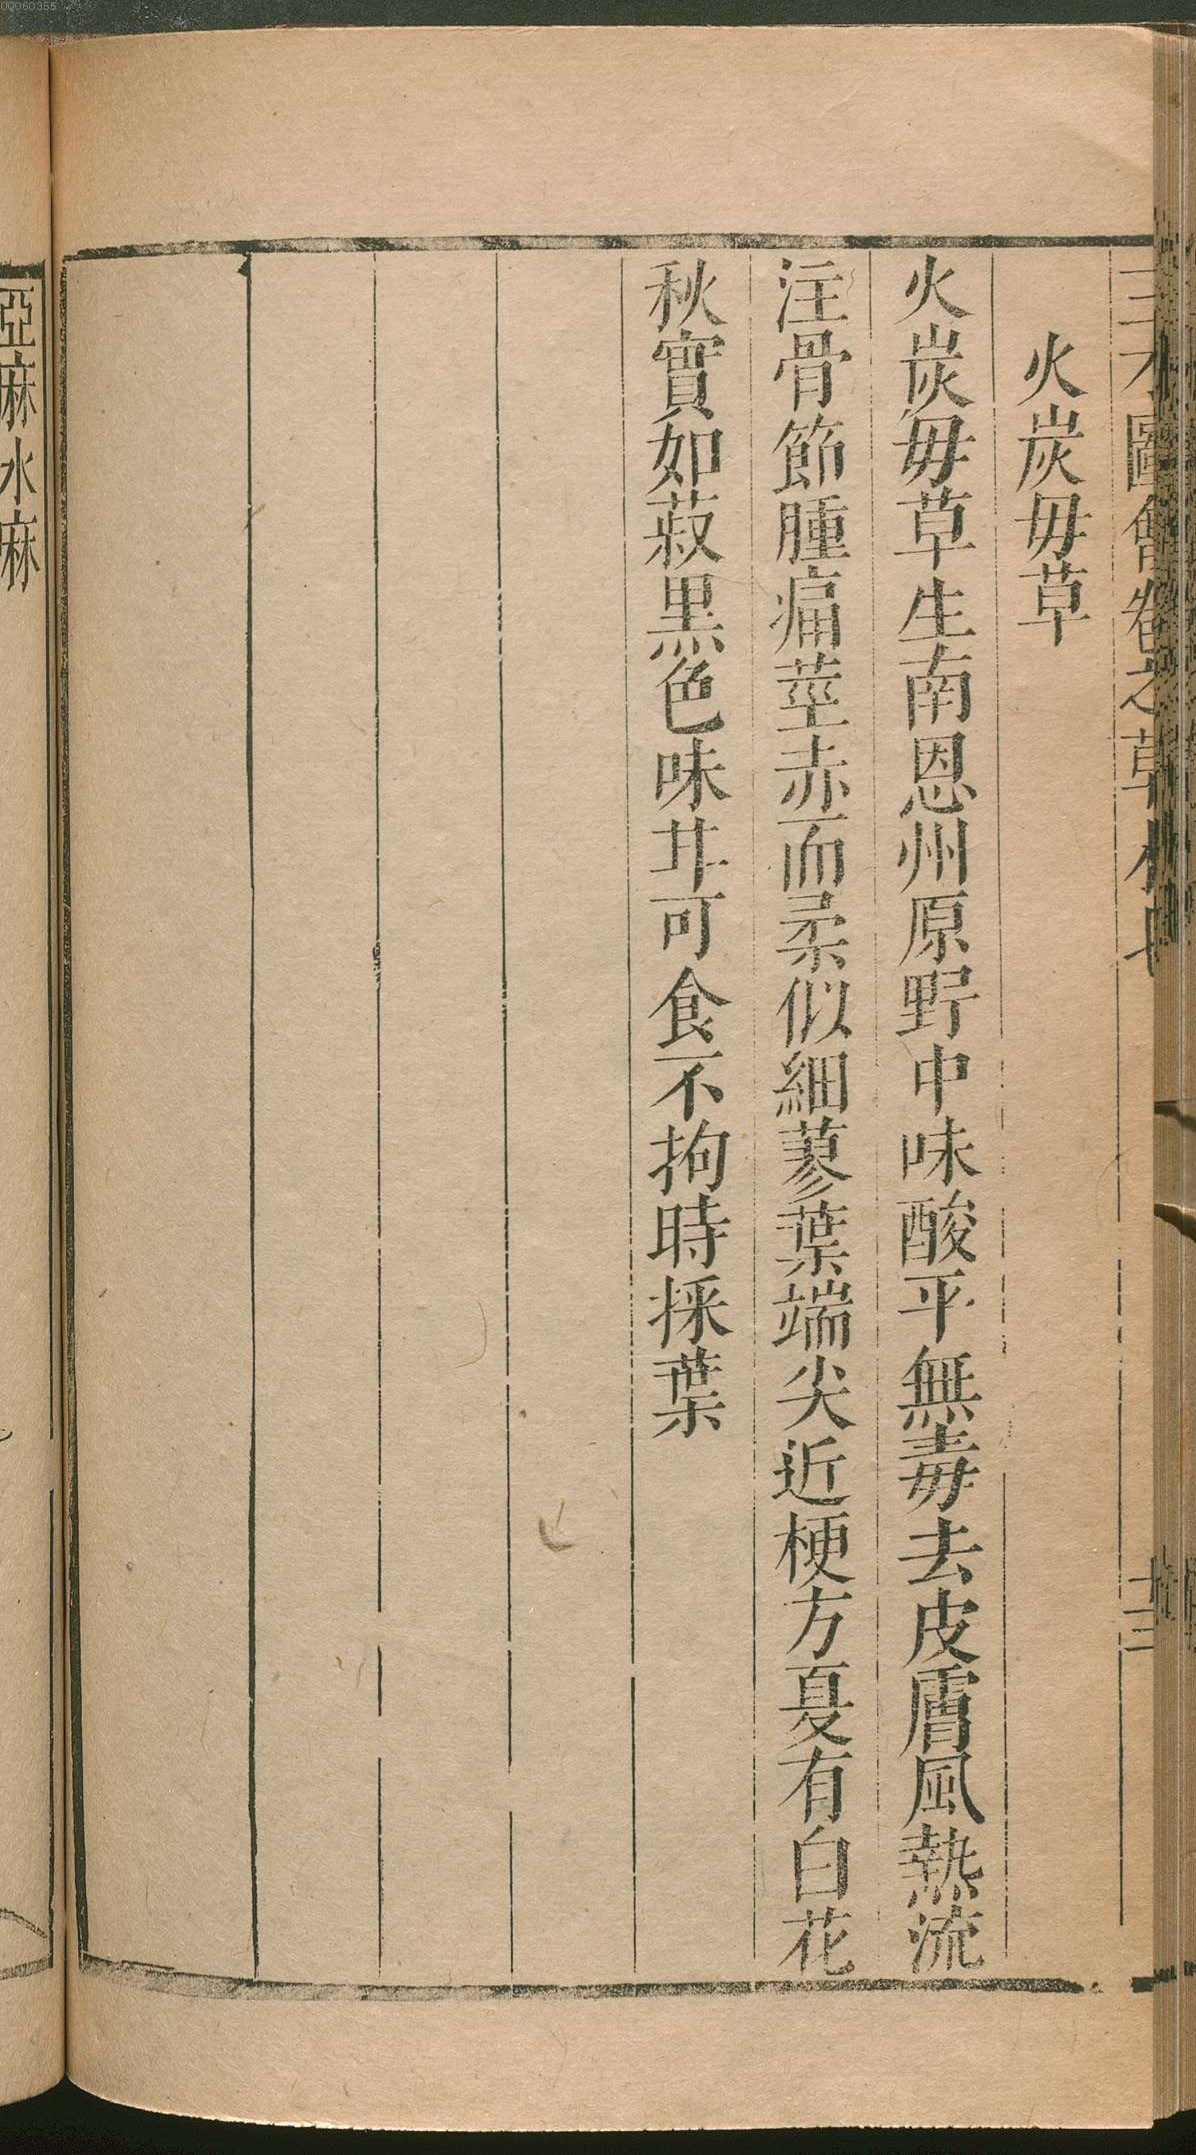 三才圖會卷之草木七
十三
火炭毋草
火炭毋草生南恩州原野中味酸平無毒去皮膚風熱流
注骨節腫痛莖赤而柔似細蓼葉端尖近梗方夏有白花
秋實如菽黑色味甘可食不拘時採葉
亞麻水麻
00060355